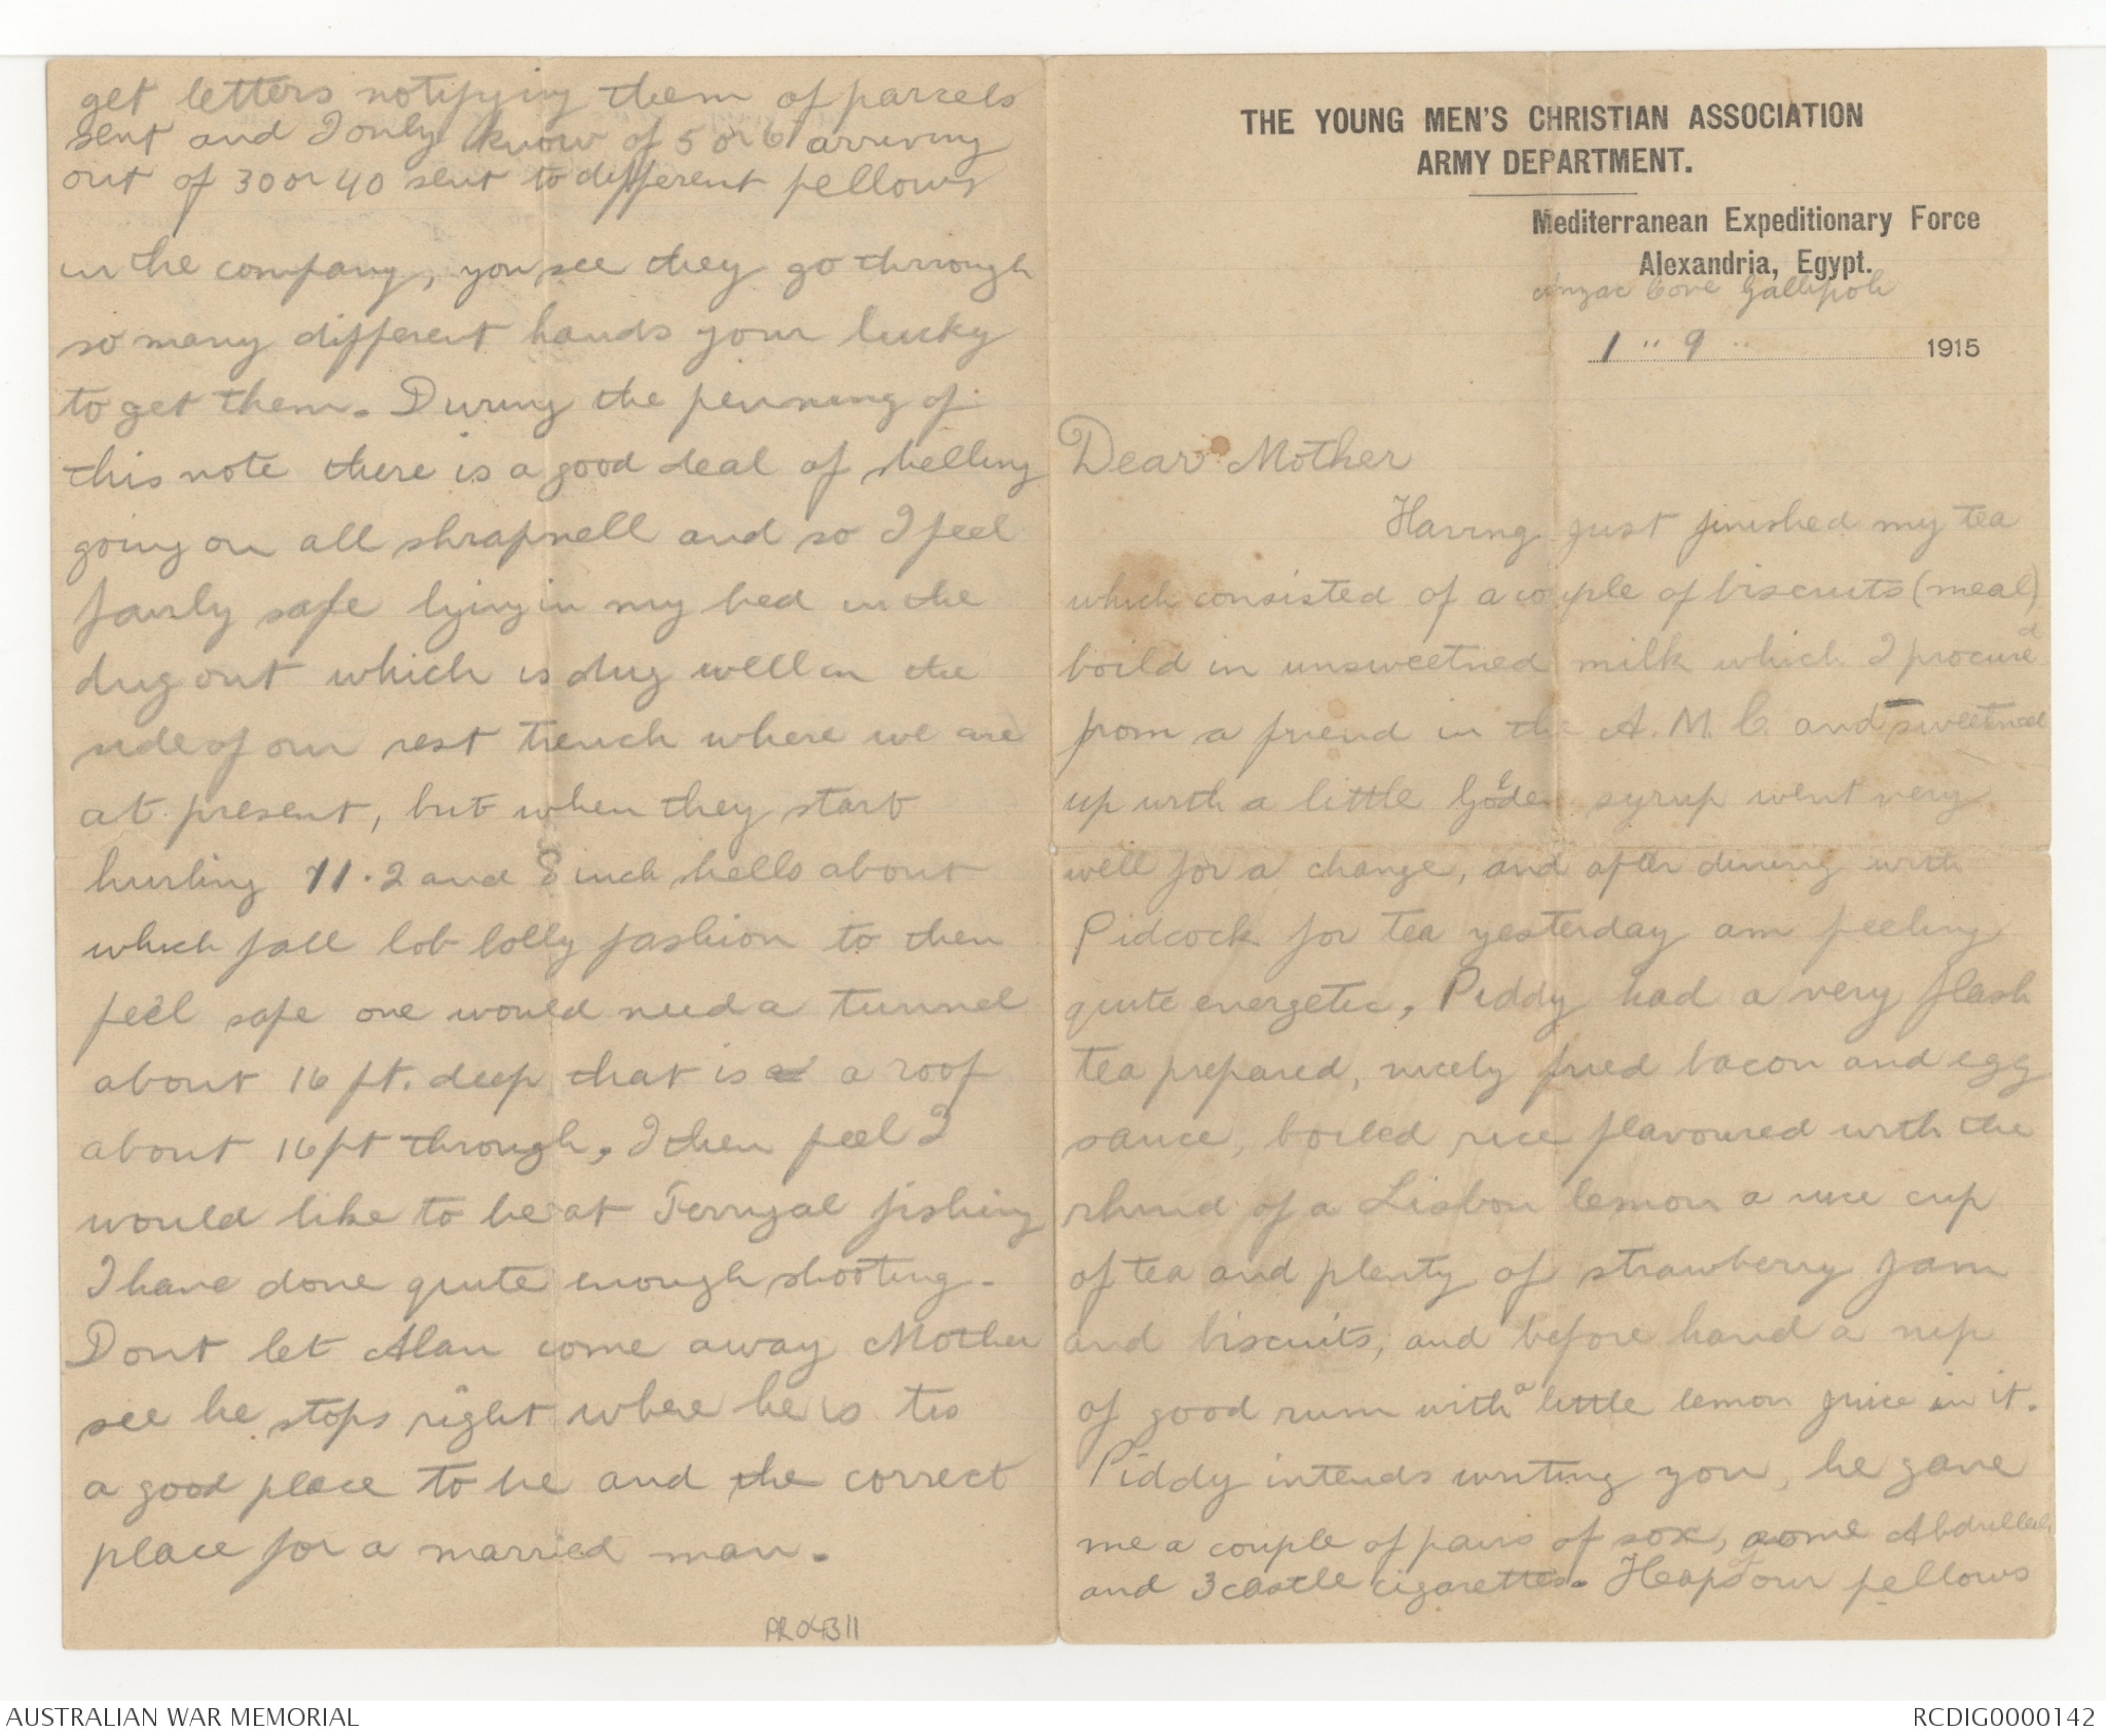 THE YOUNG MEN'S CHRISTIAN ASSOCIATION
ARMY DEPARTMENT.
Mediterranean Expeditionary Force
Alexandria, Egypt.
Anzac Cove Gallipoli
1 " 9 " 1915
Dear Mother
Having just finished my tea
which consisted of a couple of biscuits (meal)
boild in unsweetned milk which I procured
from a friend in the A. M. C. and sweetned
up with a little Golden syrup went very
well for a change, and after dining with
Pidcock for tea yesterday am feeling
quite energetic, Piddy had a very flash
tea prepared, nicely fried bacon and egg
sauce, boiled rice flavoured with the
rhind of a Lisbon lemon a nice cup
of tea and plenty of strawberry jam
and biscuits, and before hand a nip
of good rum with a little lemon juice in it.
Piddy intends writing you, he gave
me a couple of pairs of sox, some Abdullah
and 3 castle cigarettes. Heaps of our fellows
get letters notifying them of parcels
sent and I only know of 5 or 6 arriving
out of 30 or 40 sent to different fellows
in the company, you see they go through
so many different hands your lucky
to get them. During the penning of
this note there is a good deal of shelling
going on all shrapnell and so I feel
fairly safe lying in my bed in the
dug out which is dug well in the
side of our rest trench where we are
at present, but when they start
hurling 11.2 and 8 inch shells about
which fall lob lolly fashion to then
feel safe one would need a tunnel
about 16 ft. deep that is a a roof
about 16 ft through, I then feel I
would like to be at Terrigal fishing
I have done quite enough shooting.
Dont let Alan come away Mother
see he stops right where he is tis
a good place to be and the correct
place for a married man.
PR04311
AUSTRALIAN WAR MEMORIAL
RCDIG0000142